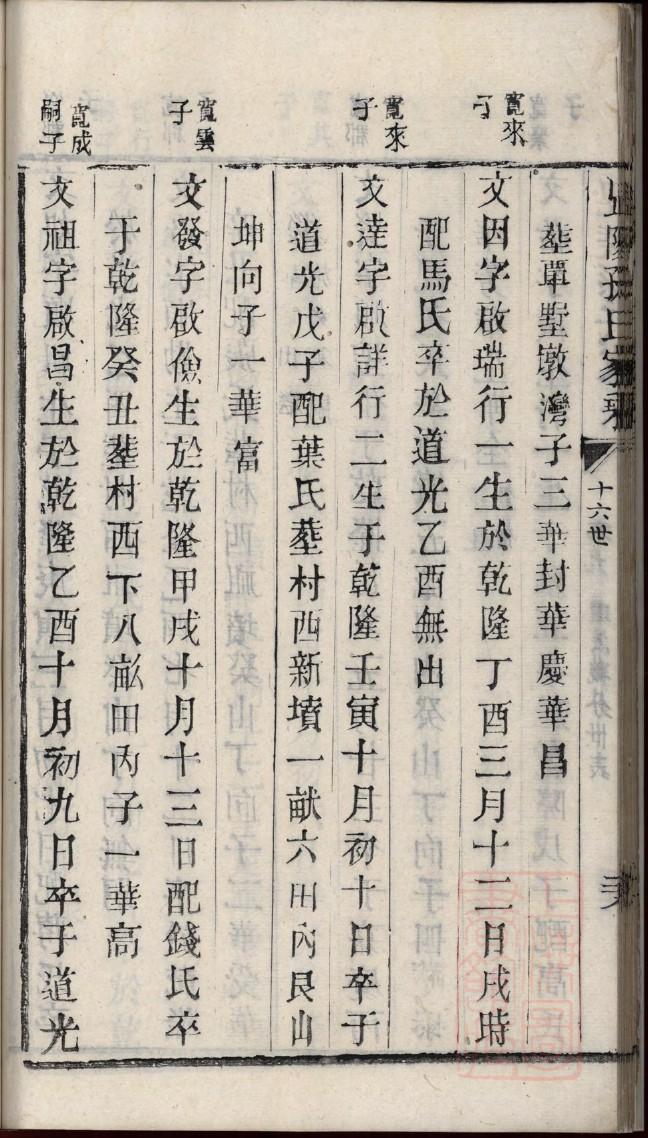 孫氏家乘
十六世
葬單墅墩灣子三華封華慶華昌
寬來
子
文因字啟瑞行一生於乾隆丁酉三月十二日戌時
配馬氏卒於道光乙酉無出
寬來
子
文達字啟詳行二生于乾隆壬寅十月初十日卒于
道光戊子配葉氏葬村西新墳一畝六田內艮山
坤向子一華富
寬雲
子
文發字啟儉生於乾隆甲戌十月十三日配錢氏卒
于乾隆癸丑葬村西下八畝田內子一華高
寬成
嗣子
文祖字啟昌生於乾隆乙酉十月初九日卒于道光